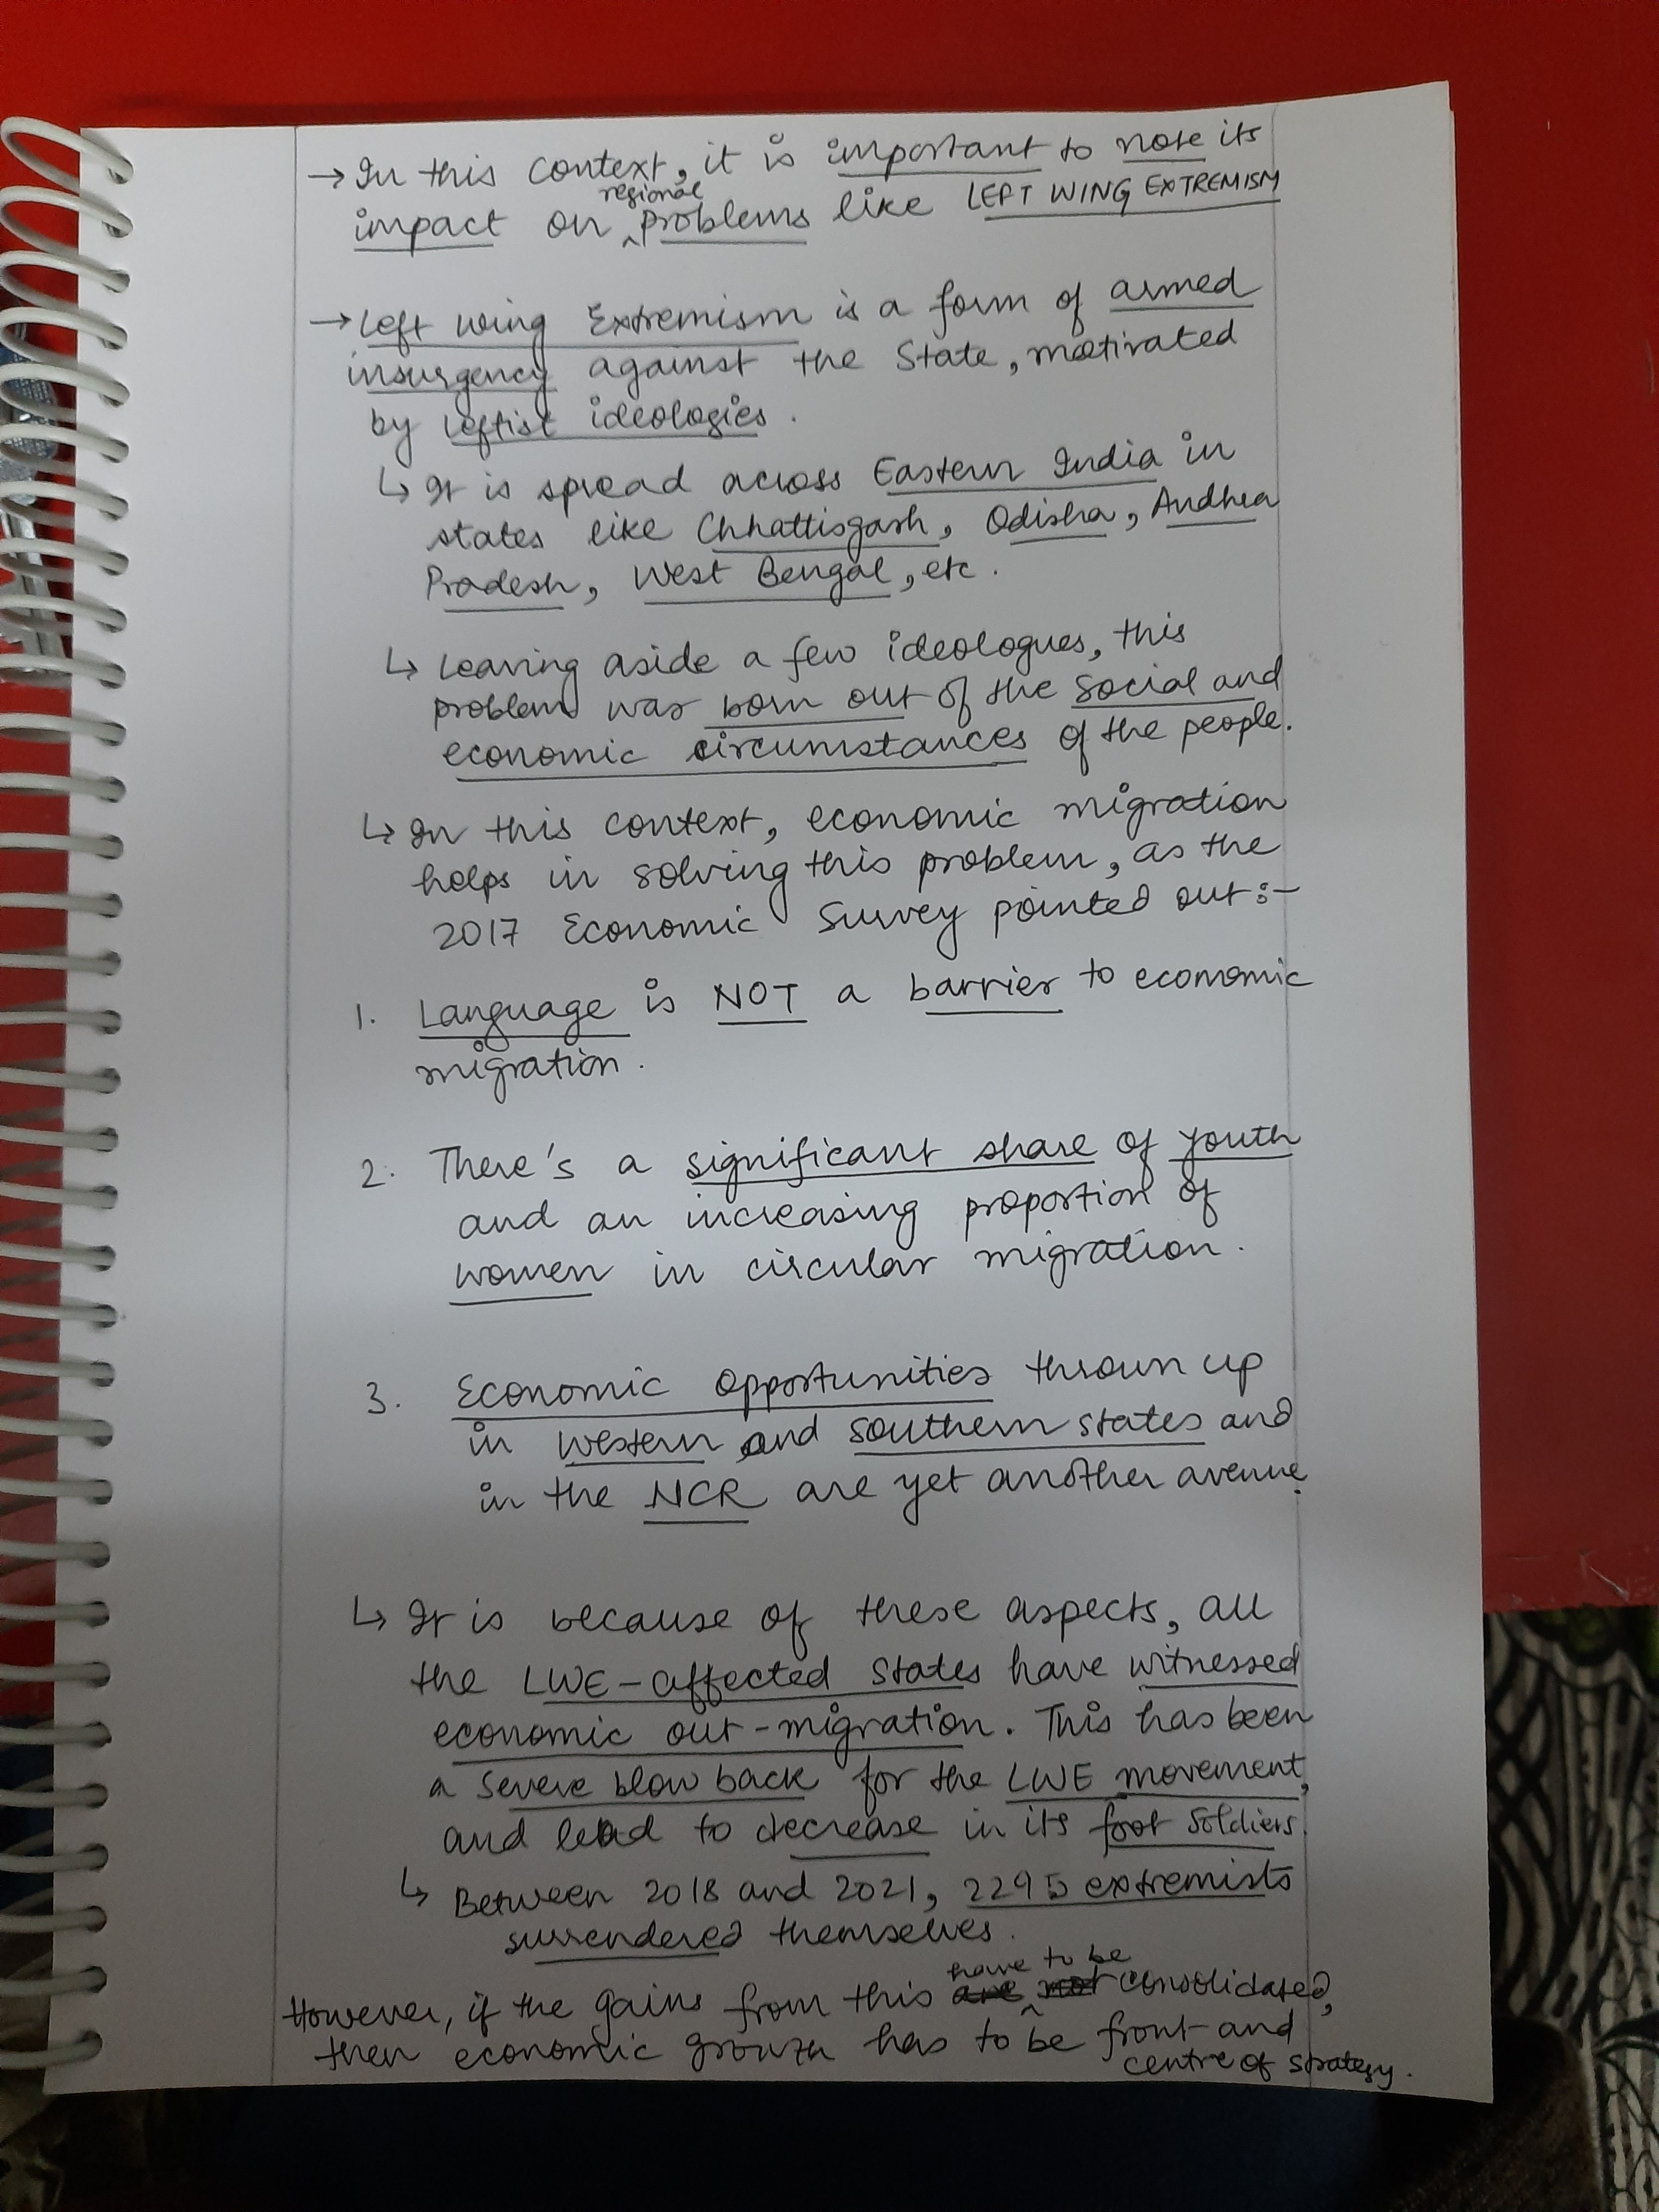 → In this context, it is important to note its
regional
impact on ‸ problems like LEFT WING EXTREMISM
→ Left wing Extremism is a form of armed
insurgency against the State, motivated
by leftist ideologies.
↳ It is spread across Eastern India in
states like Chhattisgarh, Odisha, Andhra
Pradesh, West Bengal, etc.
↳ Leaving aside a few ideologues, this
problem was born out of the social and
economic circumstances of the people.
↳ In this context, economic migration
helps in solving this problem, as the
2017 Economic Survey pointed out:-
1. Language is NOT a barrier to economic
migration.
2. There's a significant share of youth
and an increasing proportion of
women in circular migration.
3. Economic opportunities thrown up
in western and southern states and
in the NCR are yet another avenue.
↳ It is because of these aspects, all
the LWE-affected states have witnessed
economic out-migration. This has been
a severe blow back for the LWE movement,
and lead to decrease in its foot soldiers.
↳ Between 2018 and 2021, 2295 extremists
surrendered themselves.
have to be
However, if the gains from this are not ‸ consolidated,
then economic growth has to be front and
centre of strategy.